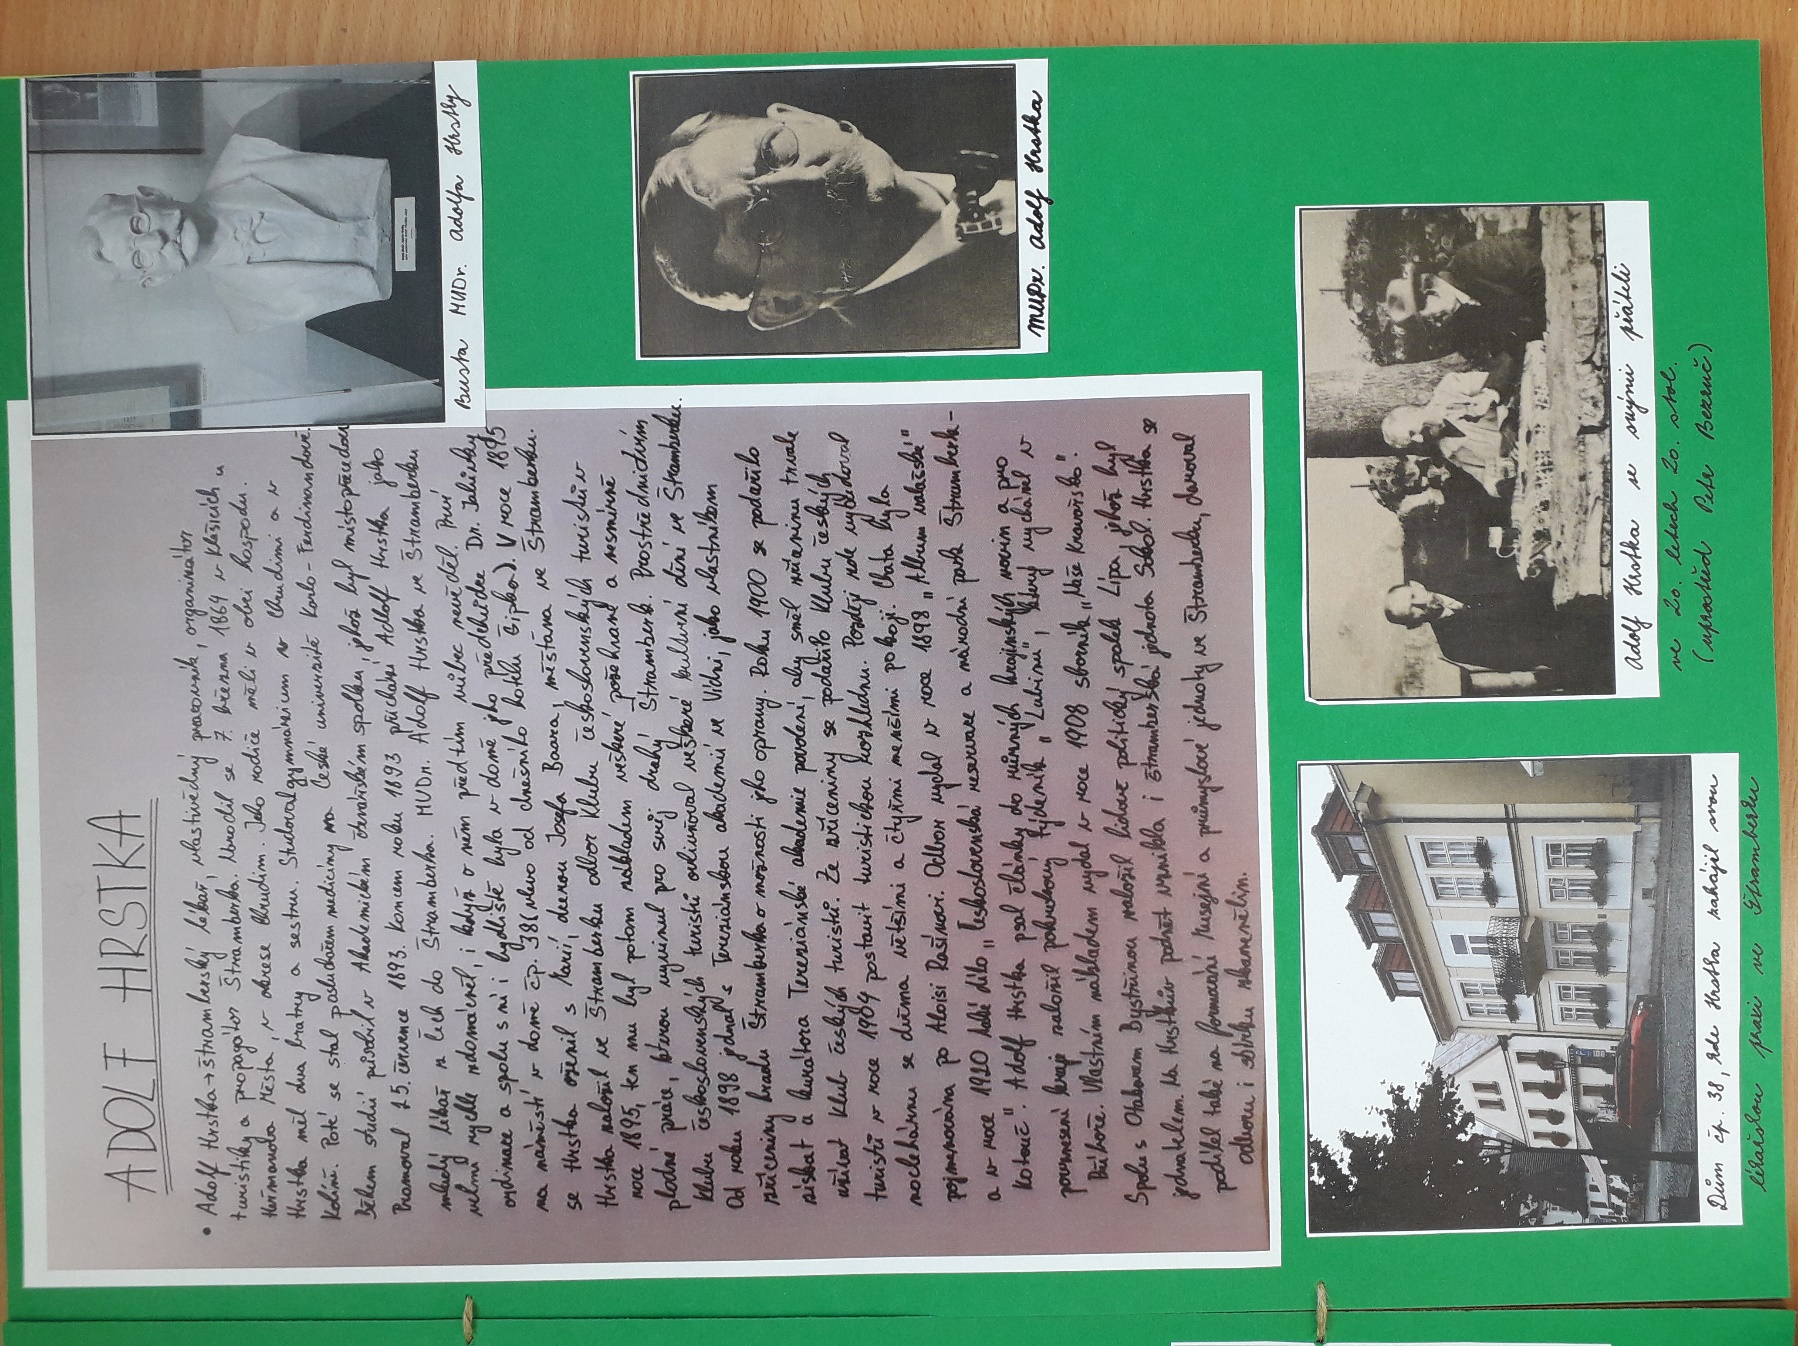 ADOLF HRSTKA
• Adolf Hrstka → štramberský lékař, vlastivědný pracovník, organizátor
turistiky a propagátor Štramberka. Narodil se 7. března 1864 v Klešicích u
Heřmanova Města, v okrese Chrudim. Jeho rodiče měli v obci hospodu.
Hrstka měl dva bratry a sestru. Studoval gymnázium v Chrudimi a v
Kolíně. Poté se stal posluchačem medicíny na České univerzitě Karlo-Ferdinandově.
Během studií působil v Akademickém čtenářském spolku, jehož byl místopředsedou
Promoval 25. července 1893. Koncem roku 1893 přichází Adolf Hrstka jako
mladý lékař z Čech do Štramberka. MUDr. Adolf Hrstka ve Štramberku
velmi rychle zdomácněl, i když o něm předtím vůbec nevěděl. První
ordinace a spolu s ní i bydliště byla v domě jeho předchůdce Dr. Jahůvky
na náměstí v domě čp. 38 (vlevo od dnešního hotelu Šipka). V roce 1895
se Hrstka oženil s Marií, dcerou Josefa Baara, měšťana ve Štramberku.
Hrstka založil ve Štramberku odbor Klubu československých turistů v
roce 1895, ten mu byl potom základem veškeré požehnané a nesmírně
plodné práce, kterou vyvinul pro svůj drahý Štramberk. Prostřednictvím
Klubu československých turistů ovlivňoval veškeré kulturní dění ve Štramberku.
Od roku 1898 jednal s Tereziánskou akademií ve Vídni, jako vlastníkem
zříceniny hradu Štramberka o možnosti jeho opravy. Roku 1900 se podařilo
získat z kurátora Tereziánské akademie povolení, aby směl zříceninu trvale
užívat Klub českých turistů. Ze zříceniny se podařilo Klubu českých
turistů v roce 1904 postavit turistickou rozhlednu. Později zde vybudoval
noclehárnu se dvěma většími a čtyřmi menšími pokoji. Chata byla
pojmenována po Aloisi Rašínovi. Odbor vydal v roce 1898 „Album valašské"
a v roce 1920 také dílo „Československá reservace a národní park Štramberk-
Kotouč". Adolf Hrstka psal články do různých krajinských novin a pro
povznesení kraje založil pokrokový týdeník „Lubina", který vycházel v
Příboře. Vlastním nákladem vydal v roce 1908 sborník „Naše Kravařsko".
Spolu s Otakarem Bystřinou založil lidově politický spolek Lípa, jehož byl
jednatelem. Na Hrstkův podnět vznikla i štramberská jednota Sokol. Hrstka se
podílel také na formování Musejní a průmyslové jednoty ve Štramberku, daroval
odboru i sbírku zkamenělin.
Busta MUDr. Adolfa Hrstky
MUDr. Adolf Hrstka
Adolf Hrstka se svými přáteli
ve 20. letech 20. stol.
(uprostřed Petr Bezruč)
Dům čp. 38, kde Hrstka zahájil svou
lékařskou praxi ve Štramberku